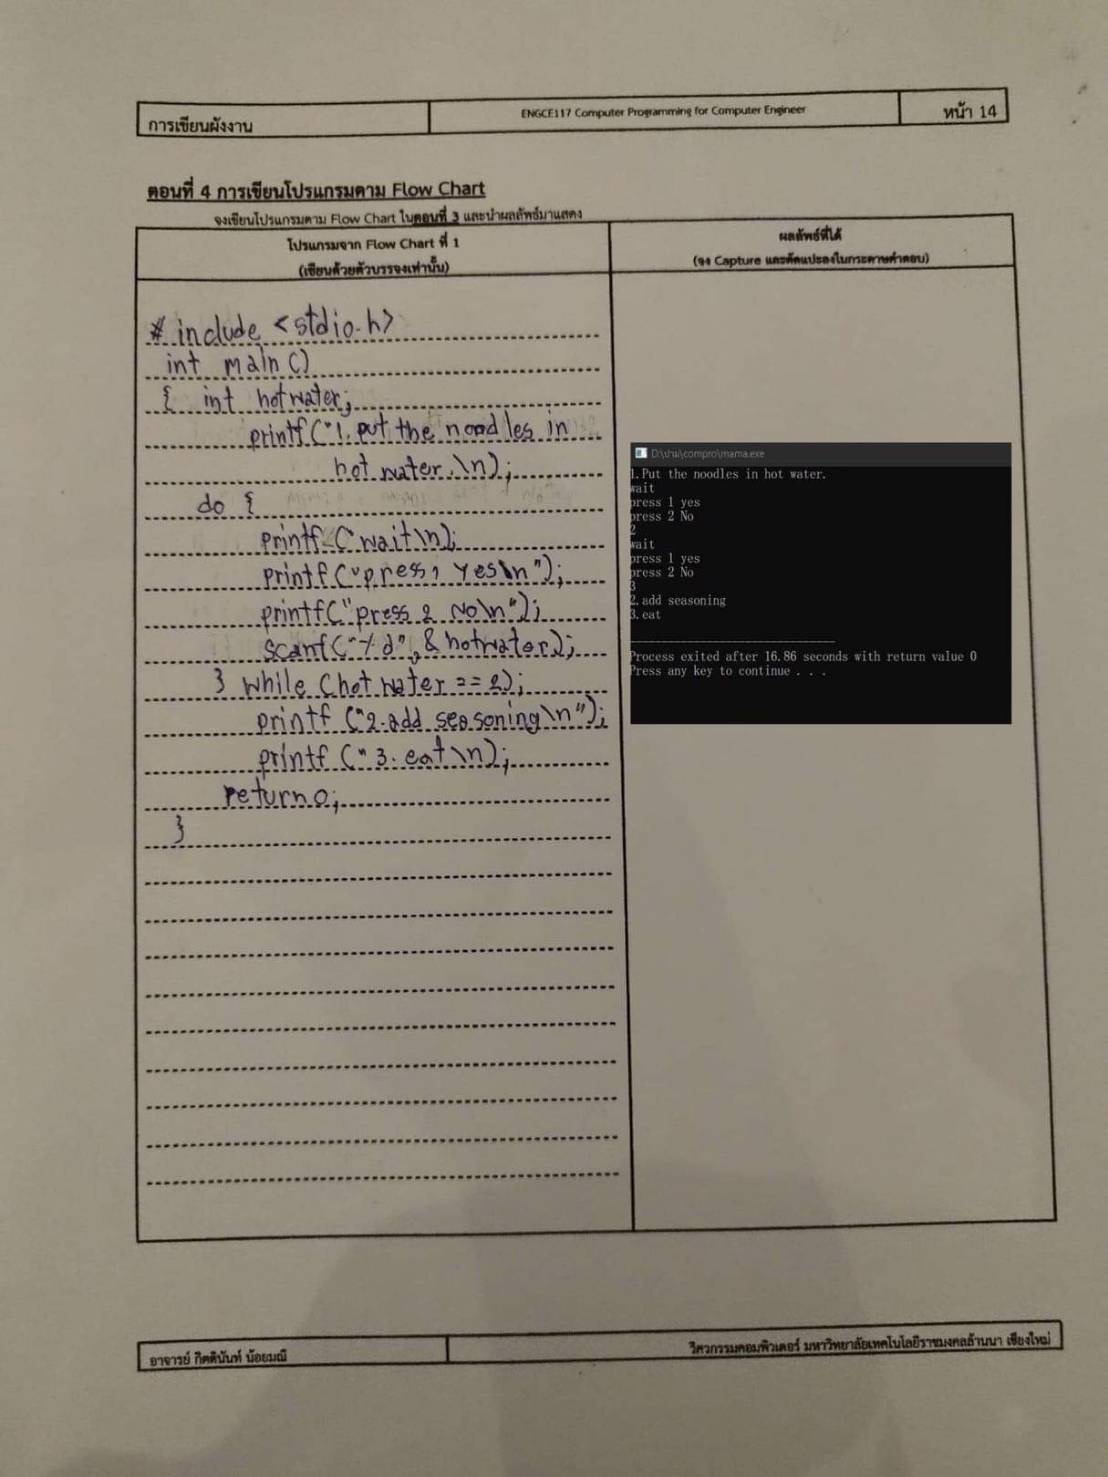 การเขียนผังงาน
ENGCE117 Computer Programming for Computer Engineer
หน้า 14
ตอนที่ 4 การเขียนโปรแกรมตาม Flow Chart
จงเขียนโปรแกรมตาม Flow Chart ในตอนที่ 3 และนำผลลัพธ์มาแสดง
โปรแกรมจาก Flow Chart ที่ 1
(เขียนด้วยตัวบรรจงเท่านั้น)
# include <stdio.h>
int main()
{ int hotwater;
printf("1. put the noodles in
hot water.\n);
do {
printf("wait\n);
printf("press 1 yes\n");
printf("press 2 No\n");
scanf("%d",&hotwater);
} while (hotwater == 2);
printf("2.add seasoning\n");
printf("3. eat\n);
return 0;
}
ผลลัพธ์ที่ได้
(จง Capture และตัดแปะลงในกระดาษคำตอบ)
D:\thu\compro\mama.exe
1.Put the noodles in hot water.
wait
press 1 yes
press 2 No
2
wait
press 1 yes
press 2 No
3
2.add seasoning
3.eat
Process exited after 16.86 seconds with return value 0
Press any key to continue . . .
อาจารย์ กิตตินันท์ น้อยมณี
วิศวกรรมคอมพิวเตอร์ มหาวิทยาลัยเทคโนโลยีราชมงคลล้านนา เชียงใหม่